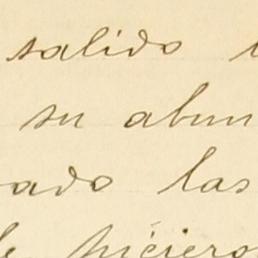 salido
su abun
ado las
hicieron